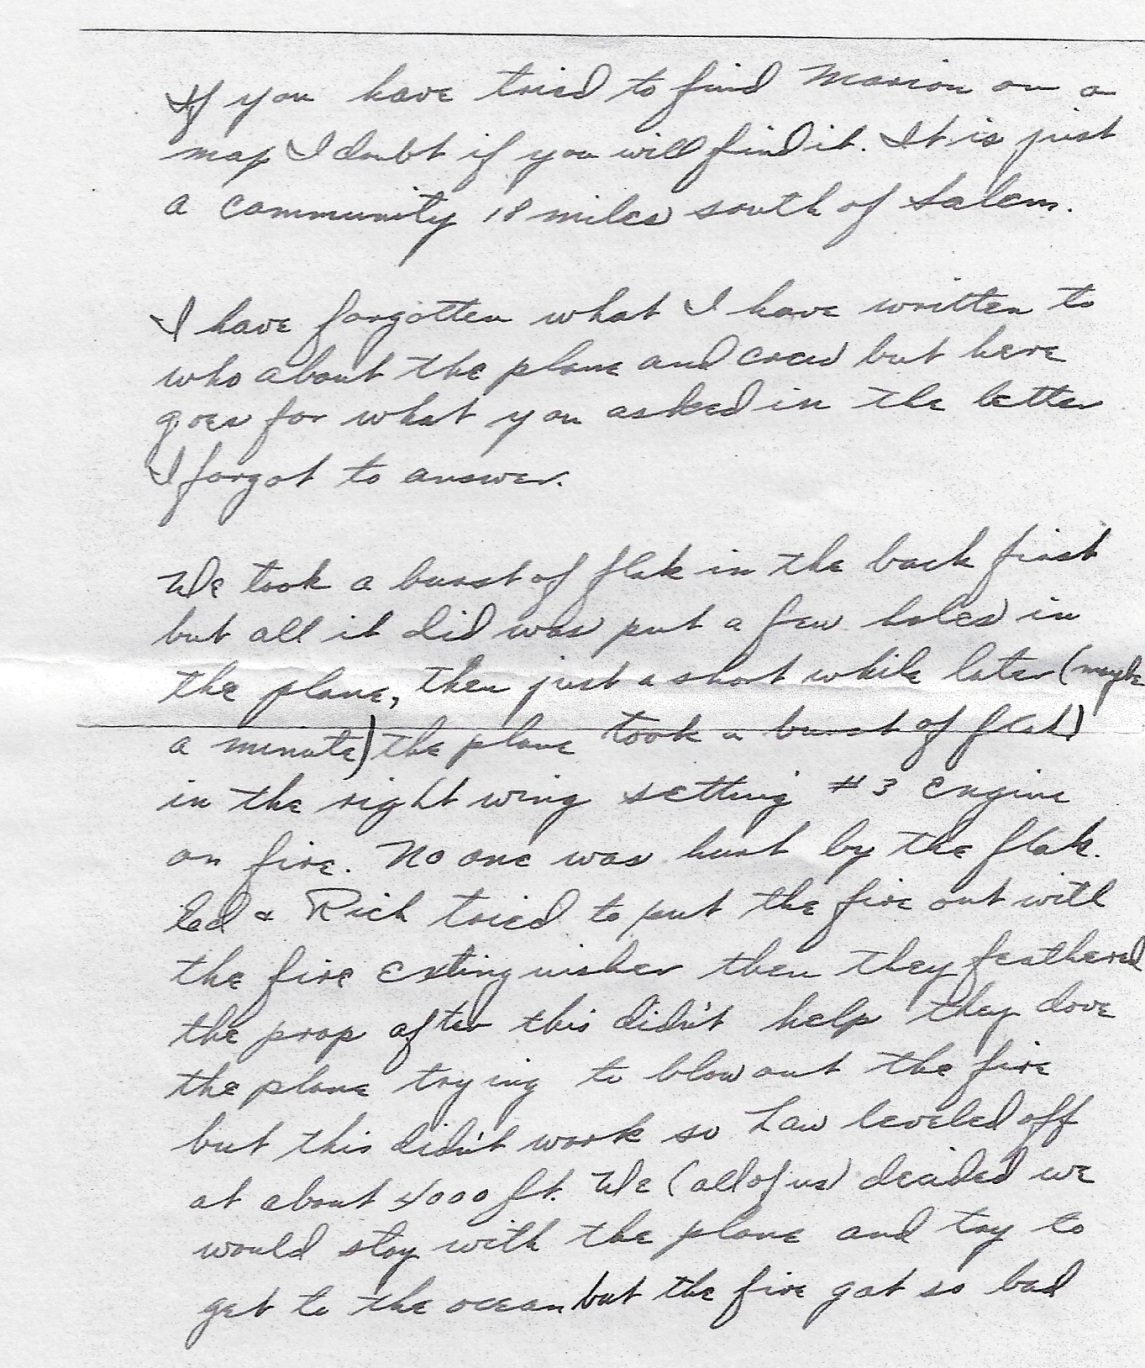 If you have tried to find Marion on a
map I doubt if you will find it. It is just
a community 18 miles south of Salem.
I have forgotten what I have written to
who about the plane and crew but here
goes for what you asked in the letter
I forgot to answer.
We took a burst of flak in the back first
but all it did was put a few holes in
the plane, then just a short while later (maybe
a minute) the plane took a burst of flak
in the right wing setting #3 engine
on fire. No one was hurt by the flak.
& Rich tried to put the fire out with
the fire extinguisher then they feathered
the prop after this didn't help they dove
the plane trying to blow out the fire
but this didn't work so Law leveled off
at about 4000 ft. We (all of us) decided we
would stay with the plane and try to
get to the ocean but the fire got so bad